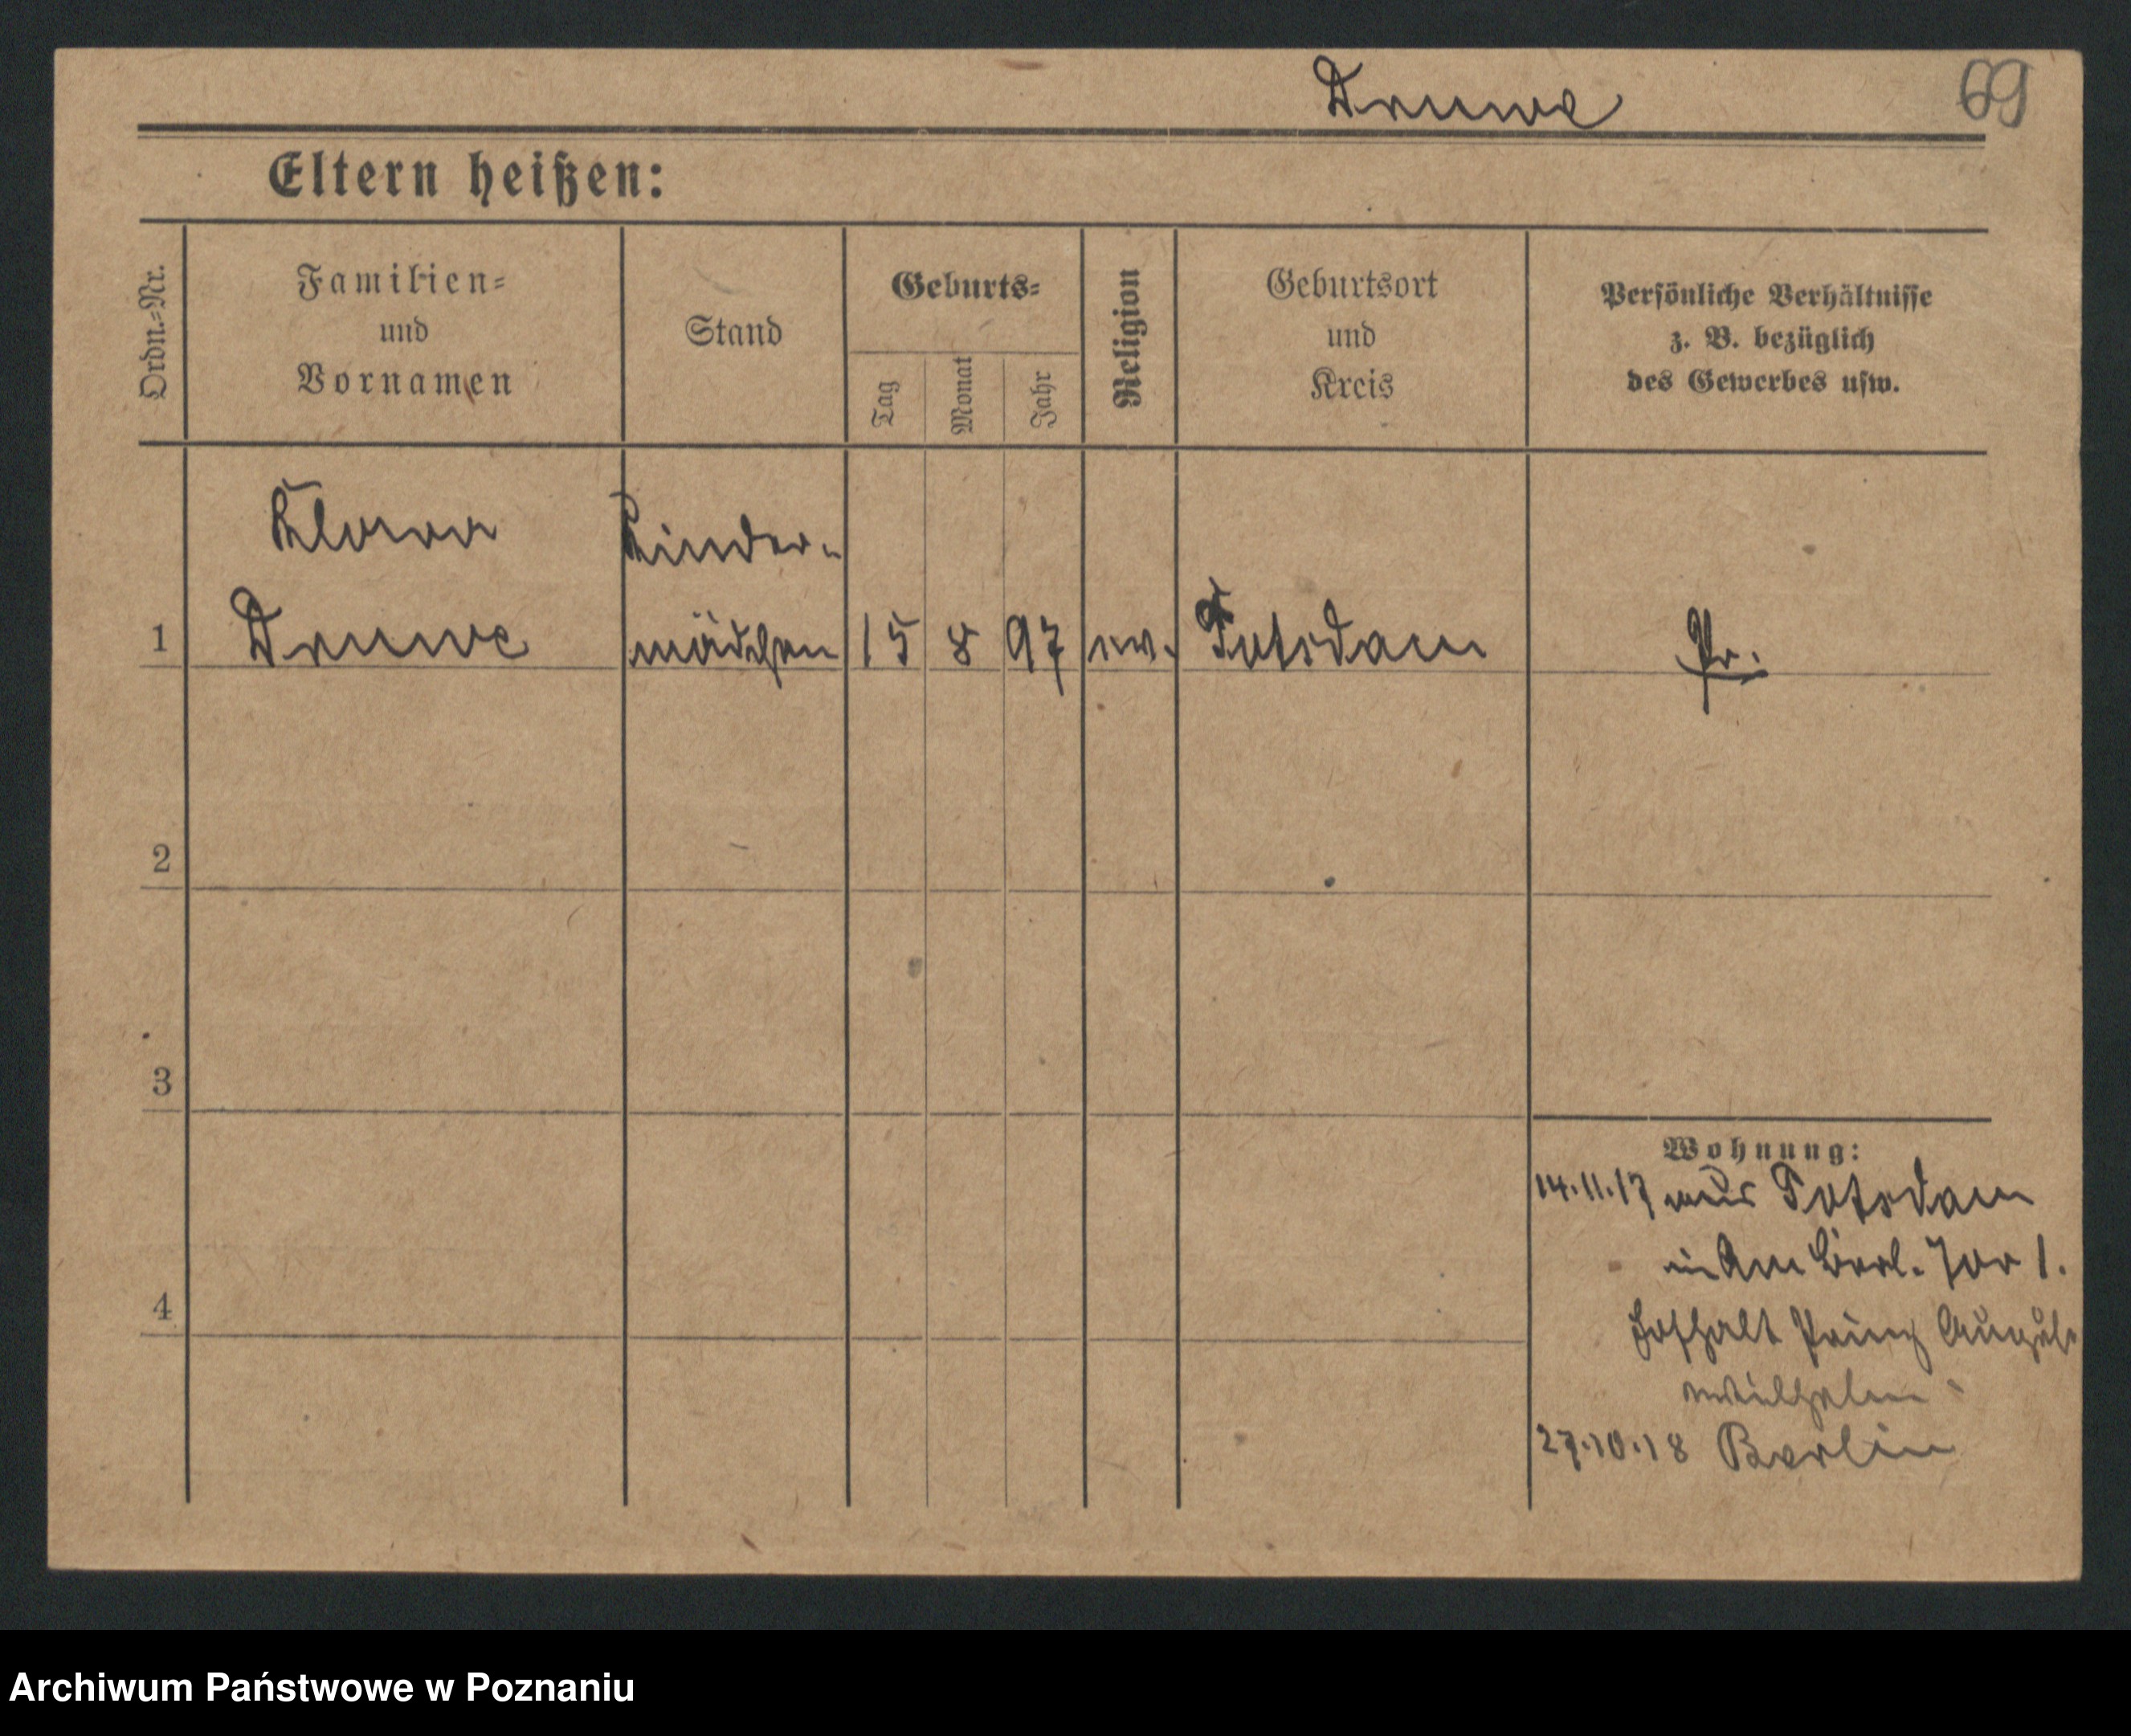 Druwe
69
Eltern heißen:
Ordn.-Nr.
Familien-
und
Vornamen
Stand
Geburts-
Tag
Monat
Jahr
Religion
Geburtsort
und
Kreis
Persönliche Verhältnisse
z. B. bezüglich
des Gewerbes usw.
Klara
Druwe
Kinder-
mädchen
1
15
8
97
ev.
Potsdam
Pr.
2
3
4
Wohnung:
14.11.17 aus Potsdam
in Am Berl. Tor 1.
Hofhalt Prinz August
Wilhelm
27.10.18 Berlin
Archiwum Państwowe w Poznaniu